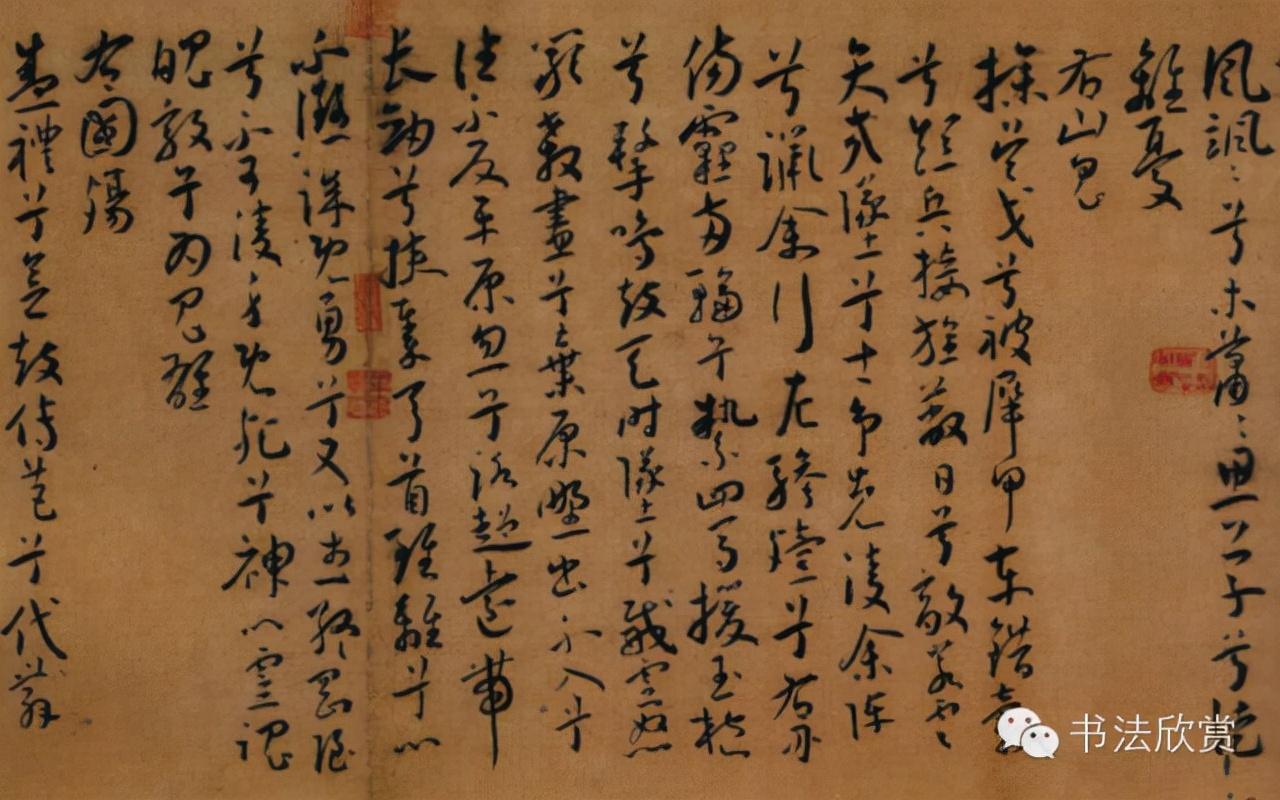 風颯〻兮木蕭〻思公子兮徒
離憂
右山鬼
操吴戈兮被犀甲車錯轂
兮短兵接旌蔽日兮敵若雲
矢交墜兮士爭先凌余陣
兮躐余行左驂殪兮右刃
傷霾兩輪兮縶四馬援玉枹
兮擊鳴鼓天時墜兮威靈怒
嚴殺盡兮棄原野出不入兮
往不反平原忽兮路超遠帶
長劍兮挾秦弓首雖離兮心
不懲誠既勇兮又以武終剛強
兮不可凌身既死兮神以靈魂
魄毅兮為鬼雄
右國殤
盛禮兮會鼓傳芭兮代舞
书法欣赏